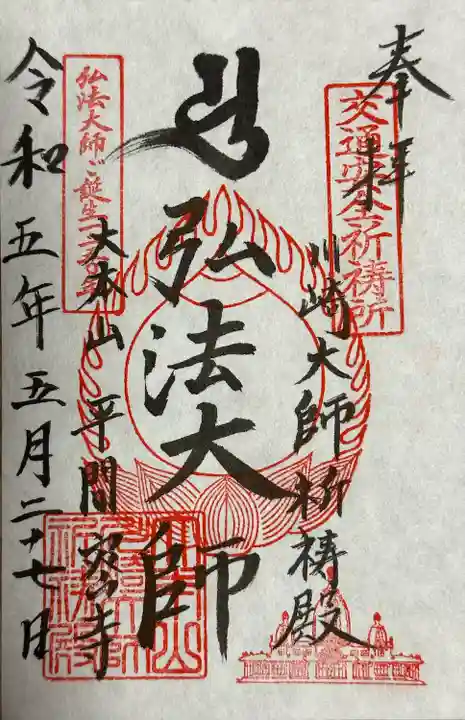 奉拝
交通安全祈祷所
川崎大師祈祷殿
弘法大師
大本山 平間寺
弘法大師ご誕生一二五〇年
令和五年五月二十七日